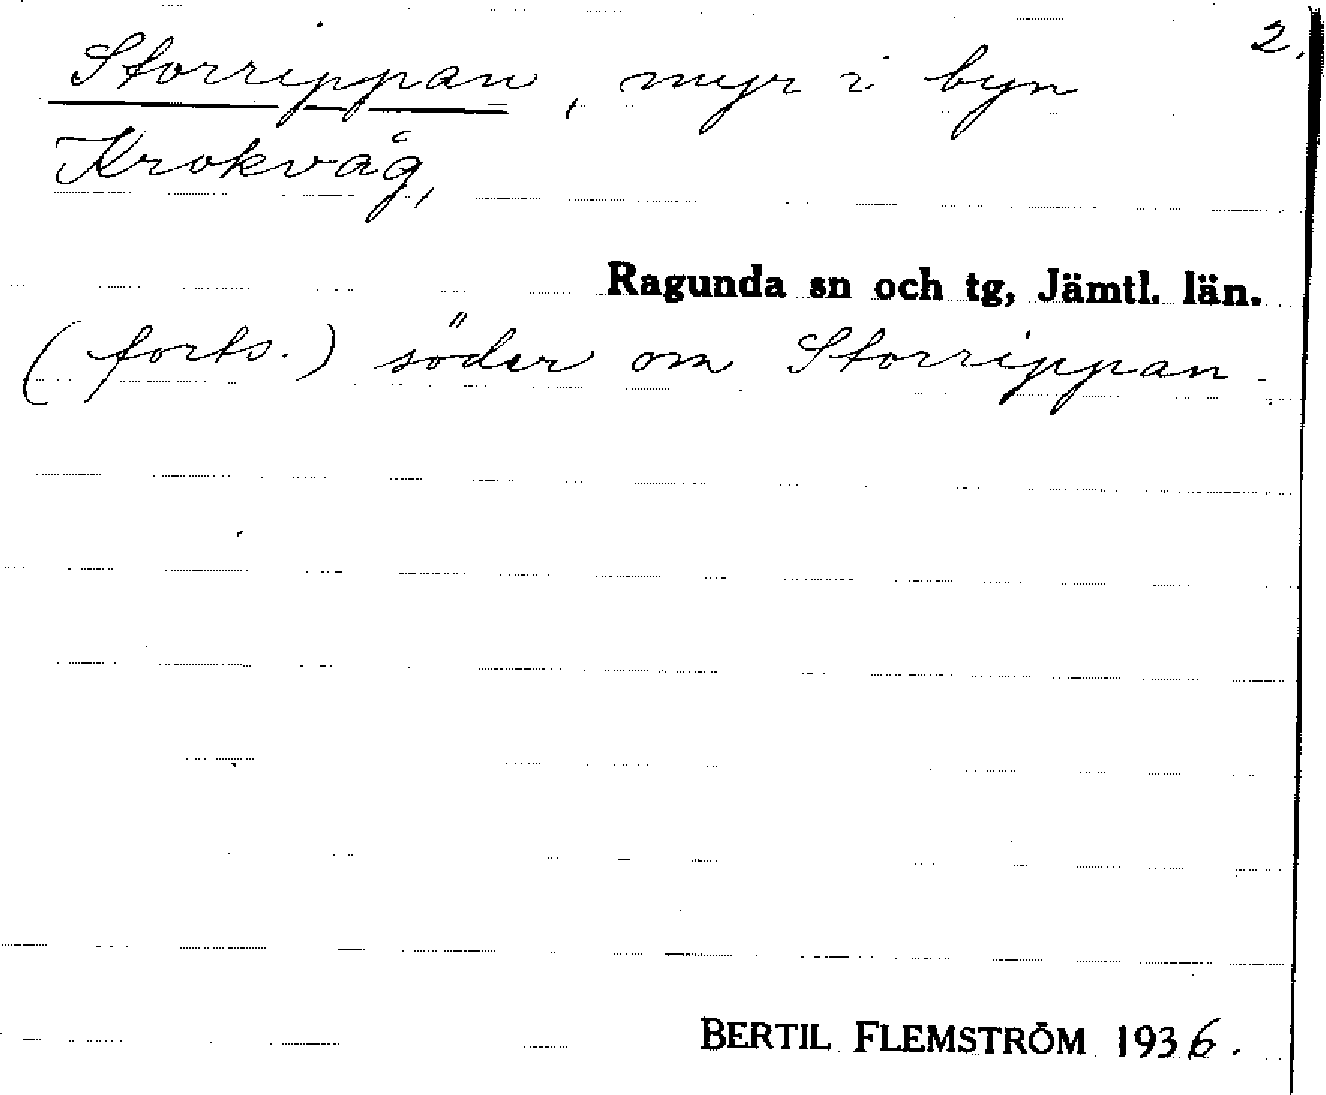 2.
Storrippan, myr i byn
Krokvåg,
Ragunda sn och tg, Jämtl. län.
(forts.) söder om Storrippan.
BERTIL FLEMSTRÖM 1936.